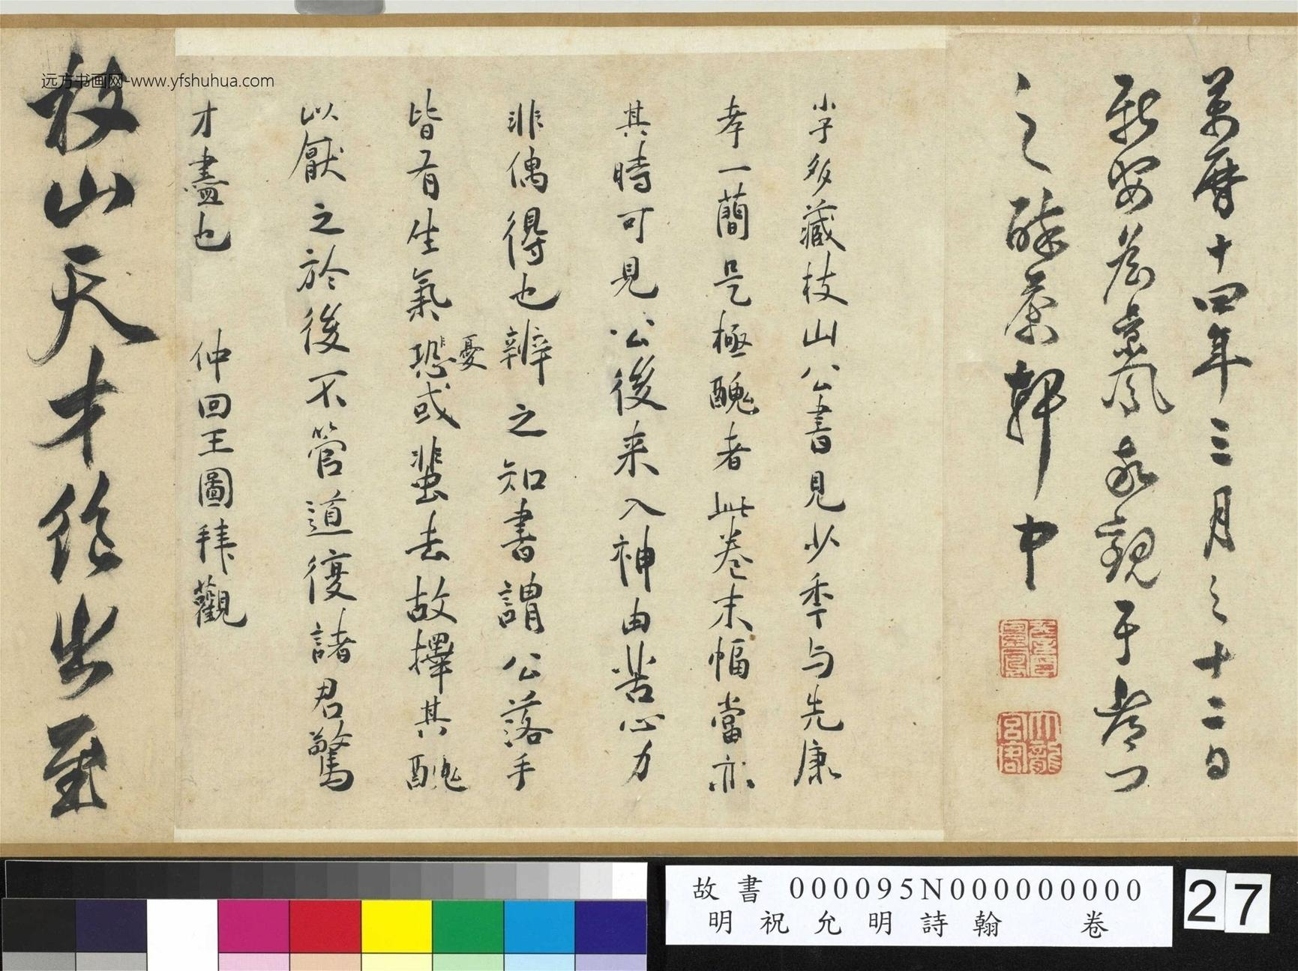 萬曆十四年三月之十二日
新安詹景鳳敬觀于都門
之醉茶軒中
小子多藏枝山公書見少季与先康
孝一蕳是極醜者此卷末幅當亦
其時可見公後来入神由苦心力
非偶得也辨之知書謂公落手
皆有生氣恐或蜚去故擇其醜
憂
以厭之於後不管道復諸君驚
才盡也 仲回王圖拜觀
枝山天才絶出至
远方书画网-www.yfshuhua.com
故書 000095N000000000
明祝允明詩翰 卷
27